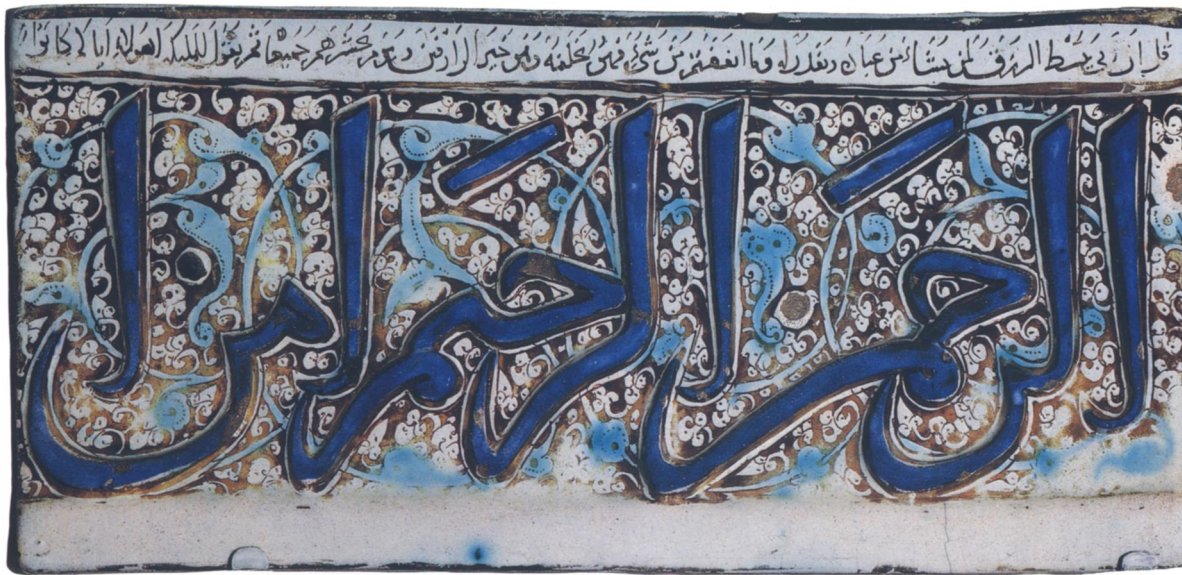 قل ان ربي يبسط الرزق لمن يشا من عباده ويقدر له وما انفقتم من شيء فهو يخلفه وهو خير الرازقين ويوم يحشرهم جميعا ثم يقول للملئكة اهولاء اياكم كانوا
الرحمن الرحيم امن ا